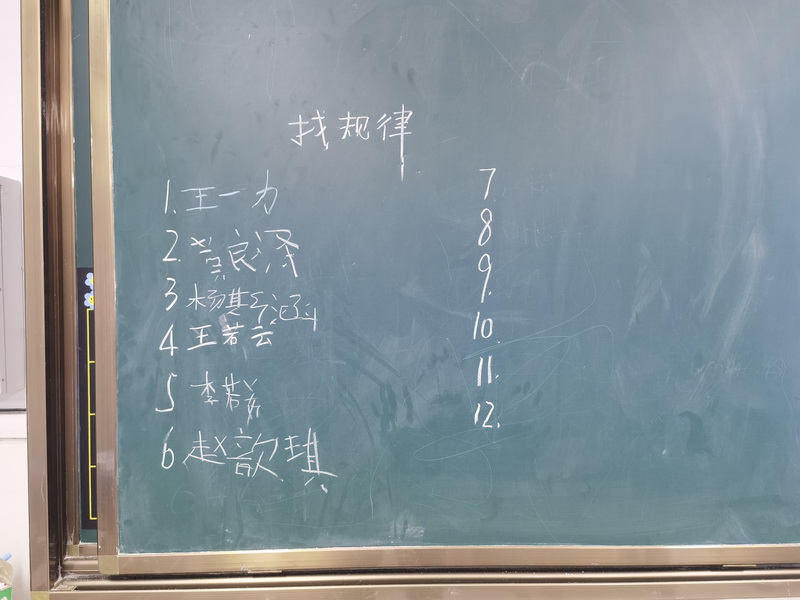 找规律
1. 王一力
2. 黄良泽
3 杨淇涵
4 王若云
5 李若
6 赵歆琪
7
8
9.
10.
11.
12.